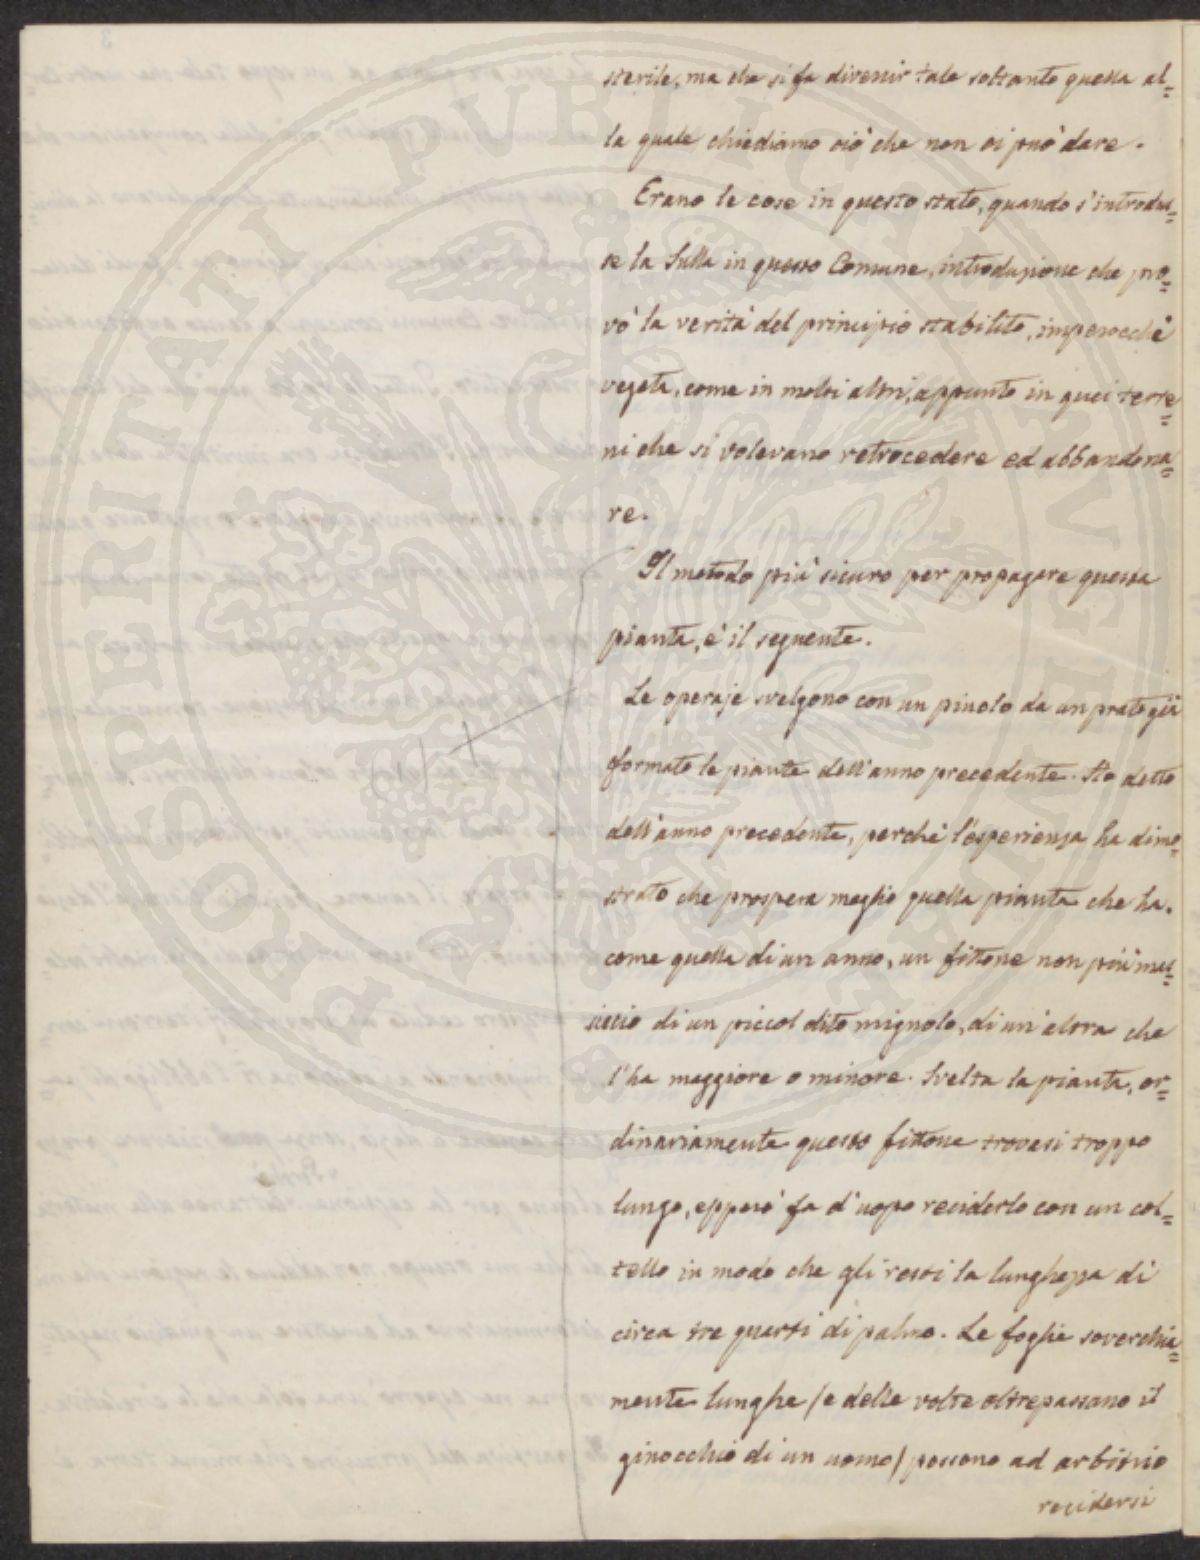 sterile, ma che si fa divenir tale soltanto quella al=
la quale chiediamo ciò che non ci può dare.
Erano le cose in questo stato, quando s'introdus=
se la Sulla in questo Comune, introduzione che pro=
vò la verità del principio stabilito, imperocchè
vegeta, come in molti altri, appunto in quei terre=
ni che si volevano retrocedere ed abbandona=
re.
Il metodo più sicuro per propagare questa
pianta, è il seguente.
Le operaje svelgono con un piuolo da un prato già
formato le piante dell'anno precedente. Ho detto
dell'anno precedente, perchè l'esperienza ha dimo=
strato che prospera meglio quella pianta che ha,
come quella di un anno, un fittone non più mas=
siccio di un piccol dito mignolo, di un'altra che
l'ha maggiore o minore. Svelta la pianta, or=
dinariamente questo fittone trovasi troppo
lungo, epperò fa d'uopo reciderlo con un col=
tello in modo che gli resti la lunghezza di
circa tre quarti di palmo. Le foglie soverchia=
mente lunghe (e delle volte oltrepassano il
ginocchio di un uomo) possono ad arbitrio
recidersi
PROSPERITATI PUBLICAE AUGENDAE